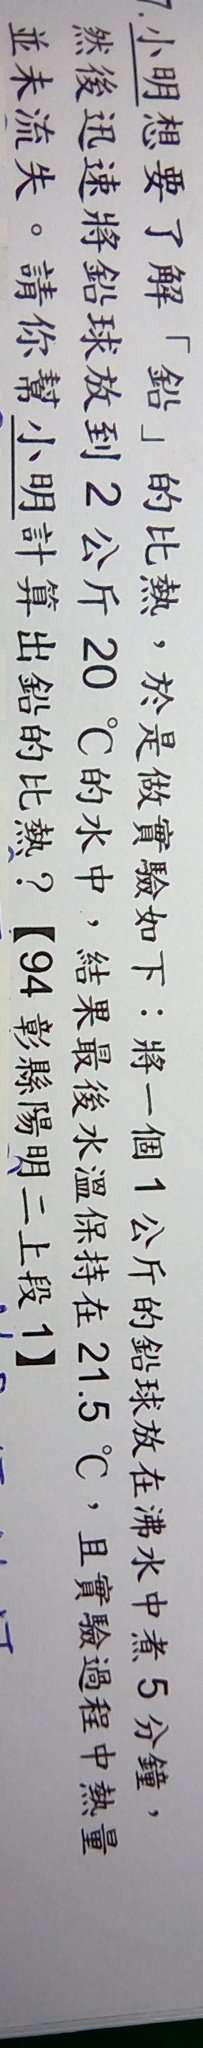 7.小明想要了解「鉛」的比熱，於是做實驗如下：將一個1公斤的鉛球放在沸水中煮5分鐘，
然後迅速將鉛球放到2公斤20 ℃的水中，結果最後水溫保持在21.5 ℃，且實驗過程中熱量
並未流失。請你幫小明計算出鉛的比熱？【94 彰縣陽明二上段1】